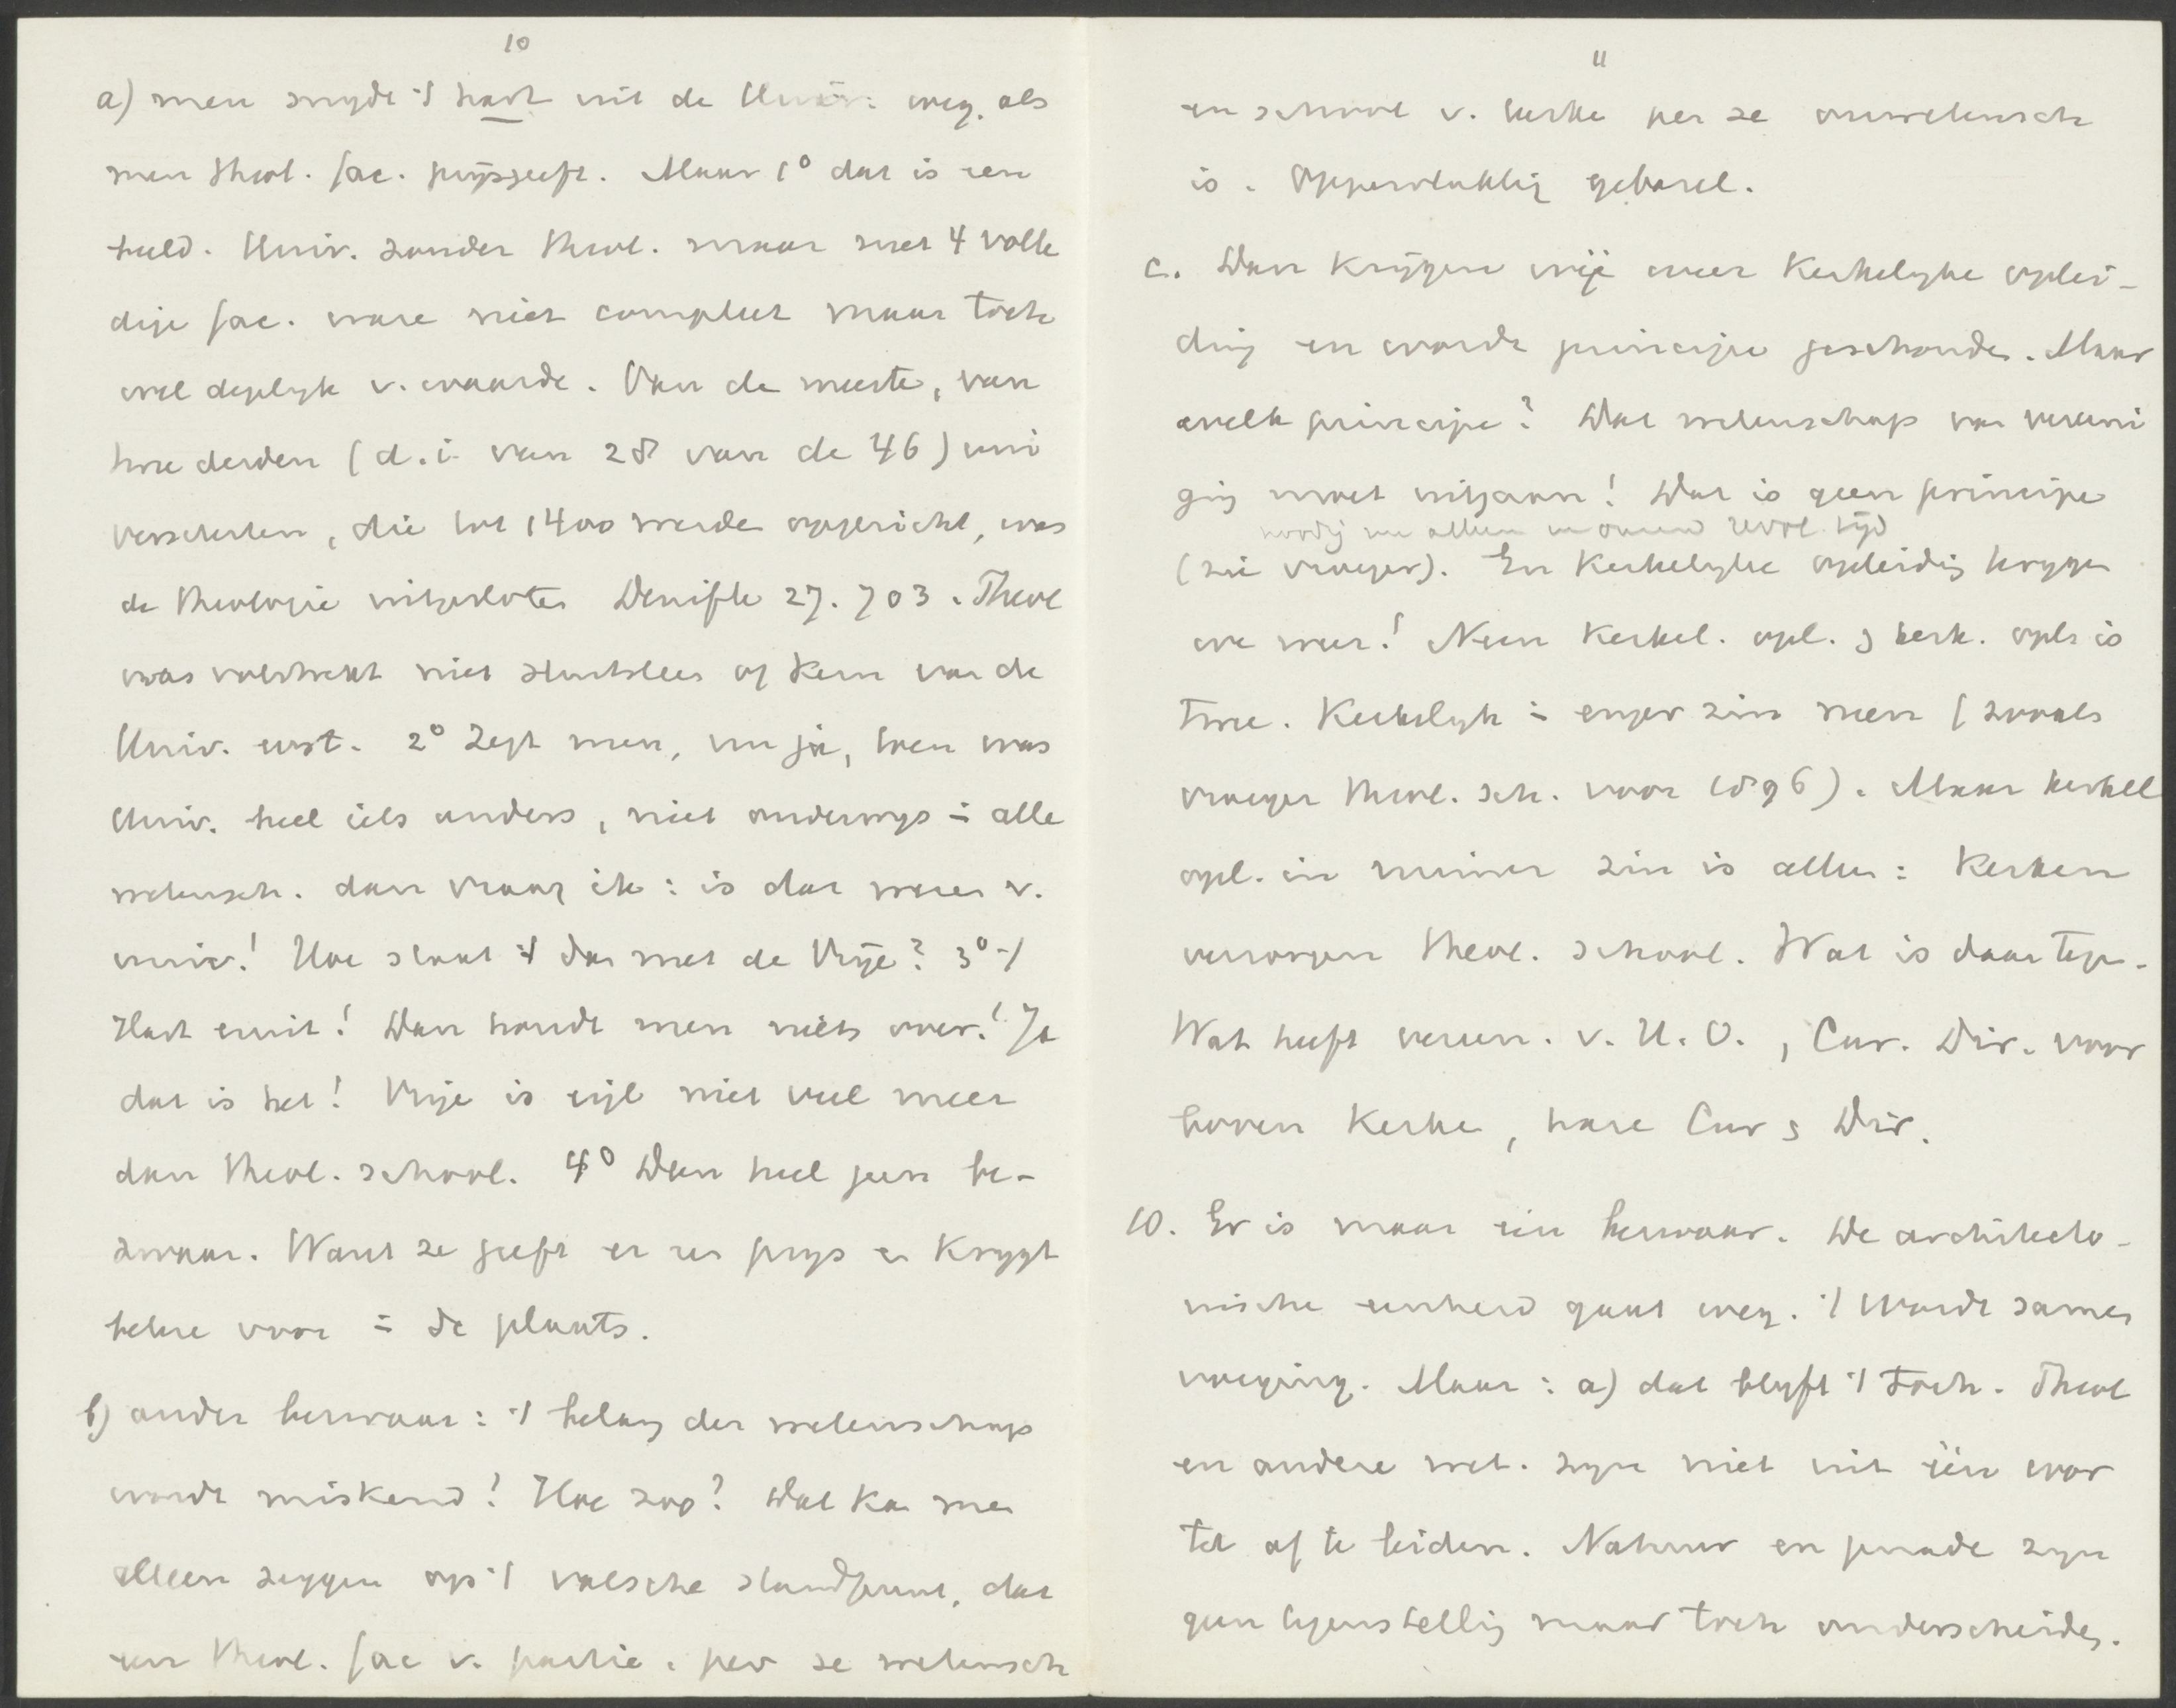 10
a) men snijdt 't hart uit de Univ: weg, als
men theol. fac. prijsgeeft. Maar 1° dat is een
beeld. Univ. zonder theol. maar met 4 volle
dige fac. ware niet compleet maar toch
wel degelijk v. waarde. Van de meeste, van
twee derden (d.i. van 28 van de 46) uni
versiteiten, die tot 1400 werden opgericht, was
de theologie uitgesloten Denifle 27. 703. Theol
was volstrekt niet sluitsteen of kern van de
Univ. eerst. 2° Zegt men, nu ja, toen was
Univ. heel iets anders, niet onderwijs = alle
wetensch. dan vraag ik: is dat wezen v.
univ.! Hoe staat 't dan met de Vrije? 3° 't
Hart eruit! Dan houdt men niets over! Ja
dat is het! Vrije is eigl niet veel meer
dan theol. school. 4° Dan heel geen be-
zwaar. Want ze geeft er een prijs en krijgt
betere voor = de plaats.
b) ander bezwaar: 't belang der wetenschap
wordt miskend! Hoe zoo? Dat kan men
alleen zeggen op 't valsche standpunt, dat
een theol. fac v. partic. per se wetensch
11
en school v. kerke per se onwetensch
is. Oppervlakkig gebazel.
c. Dan krijgen wij weer kerkelijke oplei-
ding en wordt principe geschonden. Maar
welk principe? Dat wetenschap van vereeni
ging moet uitgaan! Dat is geen principe
noodig nu alleen in onzen revol. tijd
(zie vroeger). En kerkelijke opleiding krijgen
we weer! Neen kerkel. opl. & kerk. opl. is
twee. Kerkelijk = enger zin neen (zooals
vroeger theol. sch. voor 1896). Maar kerkel
opl. in ruimer zin is alleen: kerken
verzorgen theol. school. Wat is daar tegen.
Wat heeft vereen. v. H. O., Cur. Dir. voor
boven kerke, hare Cur & Dir.
10. Er is maar één bezwaar. De architecto-
nische eenheid gaat weg. 't Wordt samen
voeging. Maar: a) dat blijft 't toch. Theol
en andere wet. zijn niet uit één wor
tel af te leiden. Natuur en genade zijn
geen tegenstelling maar toch onderscheiden.